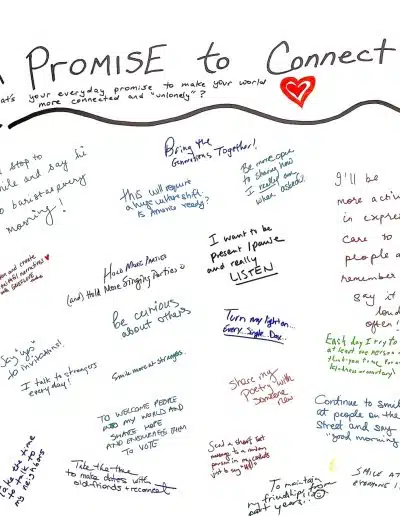 A PROMISE to CONNECT
What's your everyday promise to make your world
more connected and "unlonely"?
stop to
smile and say hi
to baristas every
morning!
Bring the
Generations Together!
Be more open
to sharing how
I really am
when asked.
this will require
a huge culture shift.
Is America ready?
I'll be
more activ
in express
care to
people a
remember
say it
loud
often!
I want to be
present/pause
and really
LISTEN
and create
HOLD MORE PARTIES
(and) Hold More Singing Parties
Be curious
about others
Turn my light on...
Every Single Day...
Each day I try to
at least one person
Say "yes"
to invitations!
I talk to strangers
everyday!
Smile more at strangers.
share my
poetry with
someone
new
TO WELCOME PEOPLE
INTO MY WORLD AND
SHARE HOPE
AND ENCOURAGE THEM
TO VOTE
Continue to smile
at people on the
street and say
"good morning
Take the time
to talk to
my neighbors
Take the time
to make dates with
old friends + reconnect
Send a short text
message to a random
person in my contacts
just to say "Hi"
To maintain
my friendships from
past years!!
SMILE AT
EVERYONE I